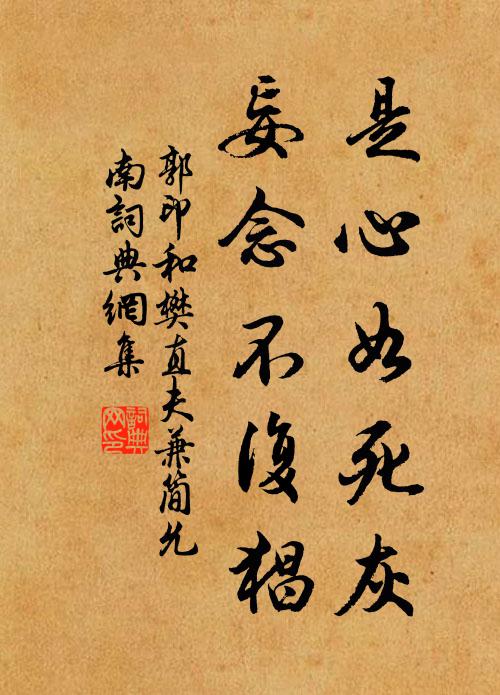 是心如死灰
妄念不復猖
郭印和樊直夫兼簡允
南詞典網集
詞典
网印